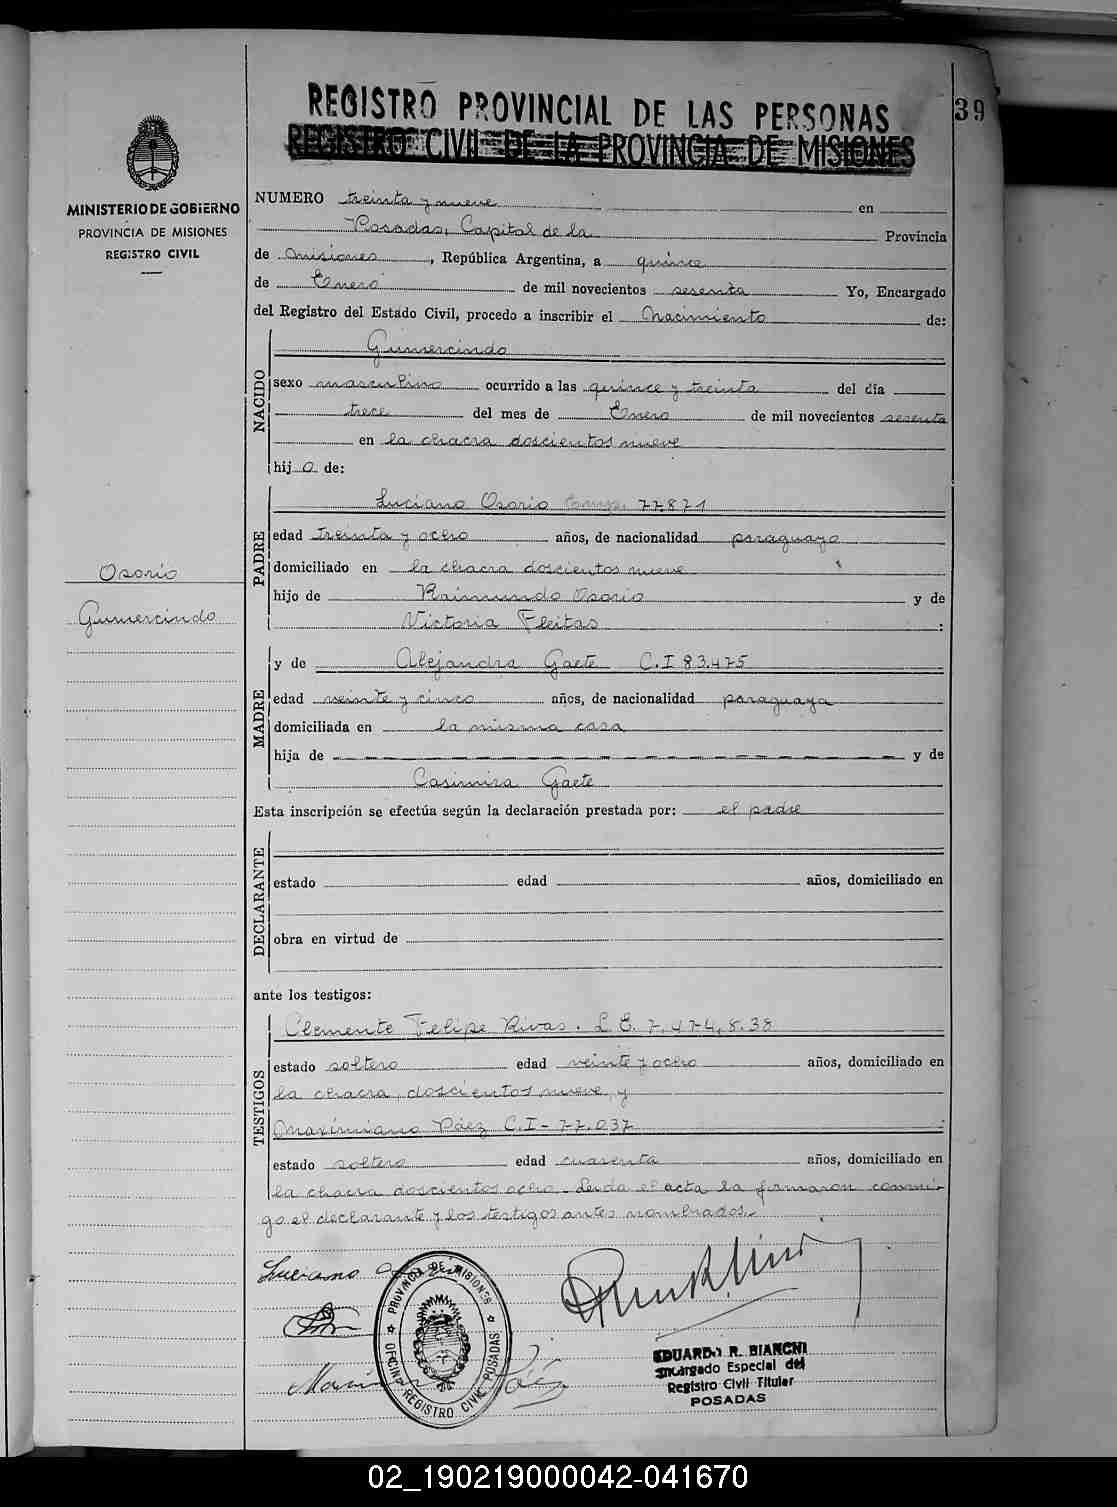 REGISTRO PROVINCIAL DE LAS PERSONAS
39
REGISTRO CIVIL DE LA PROVINCIA DE MISIONES
MINISTERIO DE GOBIERNO
PROVINCIA DE MISIONES
REGISTRO CIVIL
NUMERO treinta y nueve en
Posadas, Capital de la Provincia
de Misiones, República Argentina, a quince
de Enero de mil novecientos sesenta Yo, Encargado
del Registro del Estado Civil, procedo a inscribir el Nacimiento de:
NACIDO
Gumercindo
sexo masculino ocurrido a las quince y treinta del día
trece del mes de Enero de mil novecientos sesenta
en la chacra doscientos nueve
hijo de:
PADRE
Luciano Osorio 77.871
edad treinta y ocho años, de nacionalidad paraguayo
domiciliado en la chacra doscientos nueve
hijo de Raimundo Osorio y de
Victoria Fleitas :
Osorio
Gumercindo
MADRE
y de Alejandra Gaete C.I 83.475
edad veinte y cinco años, de nacionalidad paraguaya
domiciliada en la misma casa
hija de y de
Casimira Gaete
Esta inscripción se efectúa según la declaración prestada por: el padre
DECLARANTE
estado edad años, domiciliado en
obra en virtud de
ante los testigos:
TESTIGOS
Clemente Felipe Rivas. L.E. 7.474.838
estado soltero edad veinte y ocho años, domiciliado en
la chacra, doscientos nueve, y
Maximiano Páez C.I- 77.037 :
estado soltero edad cuarenta años, domiciliado en
la chacra doscientos ocho. Leida el acta la firmaron conmi-
go el declarante y los testigos antes nombrados.-
Luciano
PROVINCIA DE MISIONES
OFICINA REGISTRO CIVIL POSADAS
Páez
EDUARDO R. BIANCHI
Encargado Especial del
Registro Civil Titular
POSADAS
02_190219000042-041670